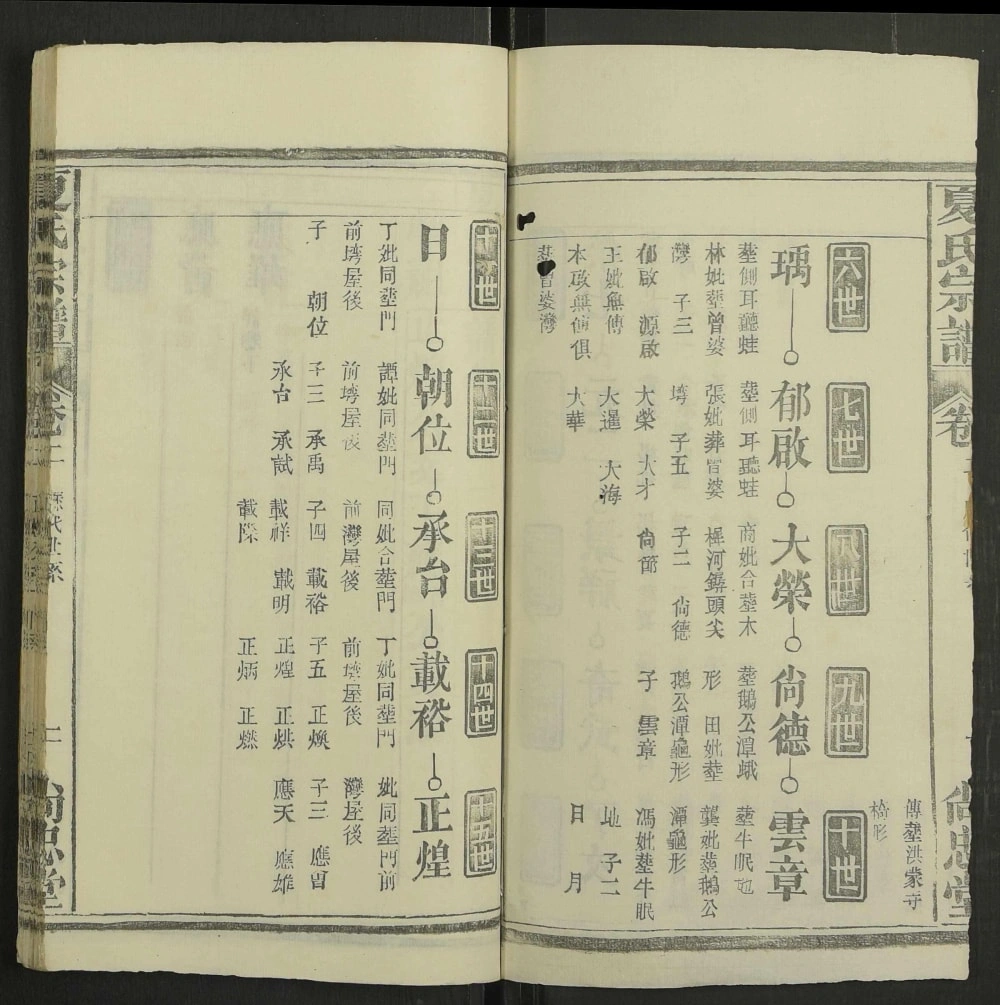 夏氏宗譜
卷
尚忠堂
傳塟洪蒙寺
椅形
六世
七世
八世
九世
十世
瑀
郁啟
大榮
尚德
雲章
塟側耳聽蛙
塟側耳聽蛙
商妣合塟木
塟鵝公潭峨
塟牛眠地
林妣塟曾婆
張妣葬曾婆
樨河鑼頭尖
形 田妣塟
龔妣塟鵝公
灣 子三
塆 子五
子二 尚德
鵝公潭龜形
潭龜形
郁啟 源啟
大榮 大才
尚節
子 雲章
馮妣塟牛眠
王妣無傳
大暹 大海
地 子二
本啟無傳俱
大華
日 月
塟曾婆灣
十一世
十二世
十三世
十四世
十五世
日
朝位
承台
載裕
正煌
丁妣同塟門
譚妣同塟門
同妣合塟門
丁妣同塟門
妣同塟門前
前塆屋後
前塆屋後
前灣屋後
前塆屋後
灣屋後
子 朝位
子三 承禹
子四 載裕
子五 正煥
子三 應曾
承台 承試
載祥 載明
正煌 正烘
應天 應雄
載陞
正炳 正燃
夏氏宗譜
卷二
歷代世系
二
尚忠堂